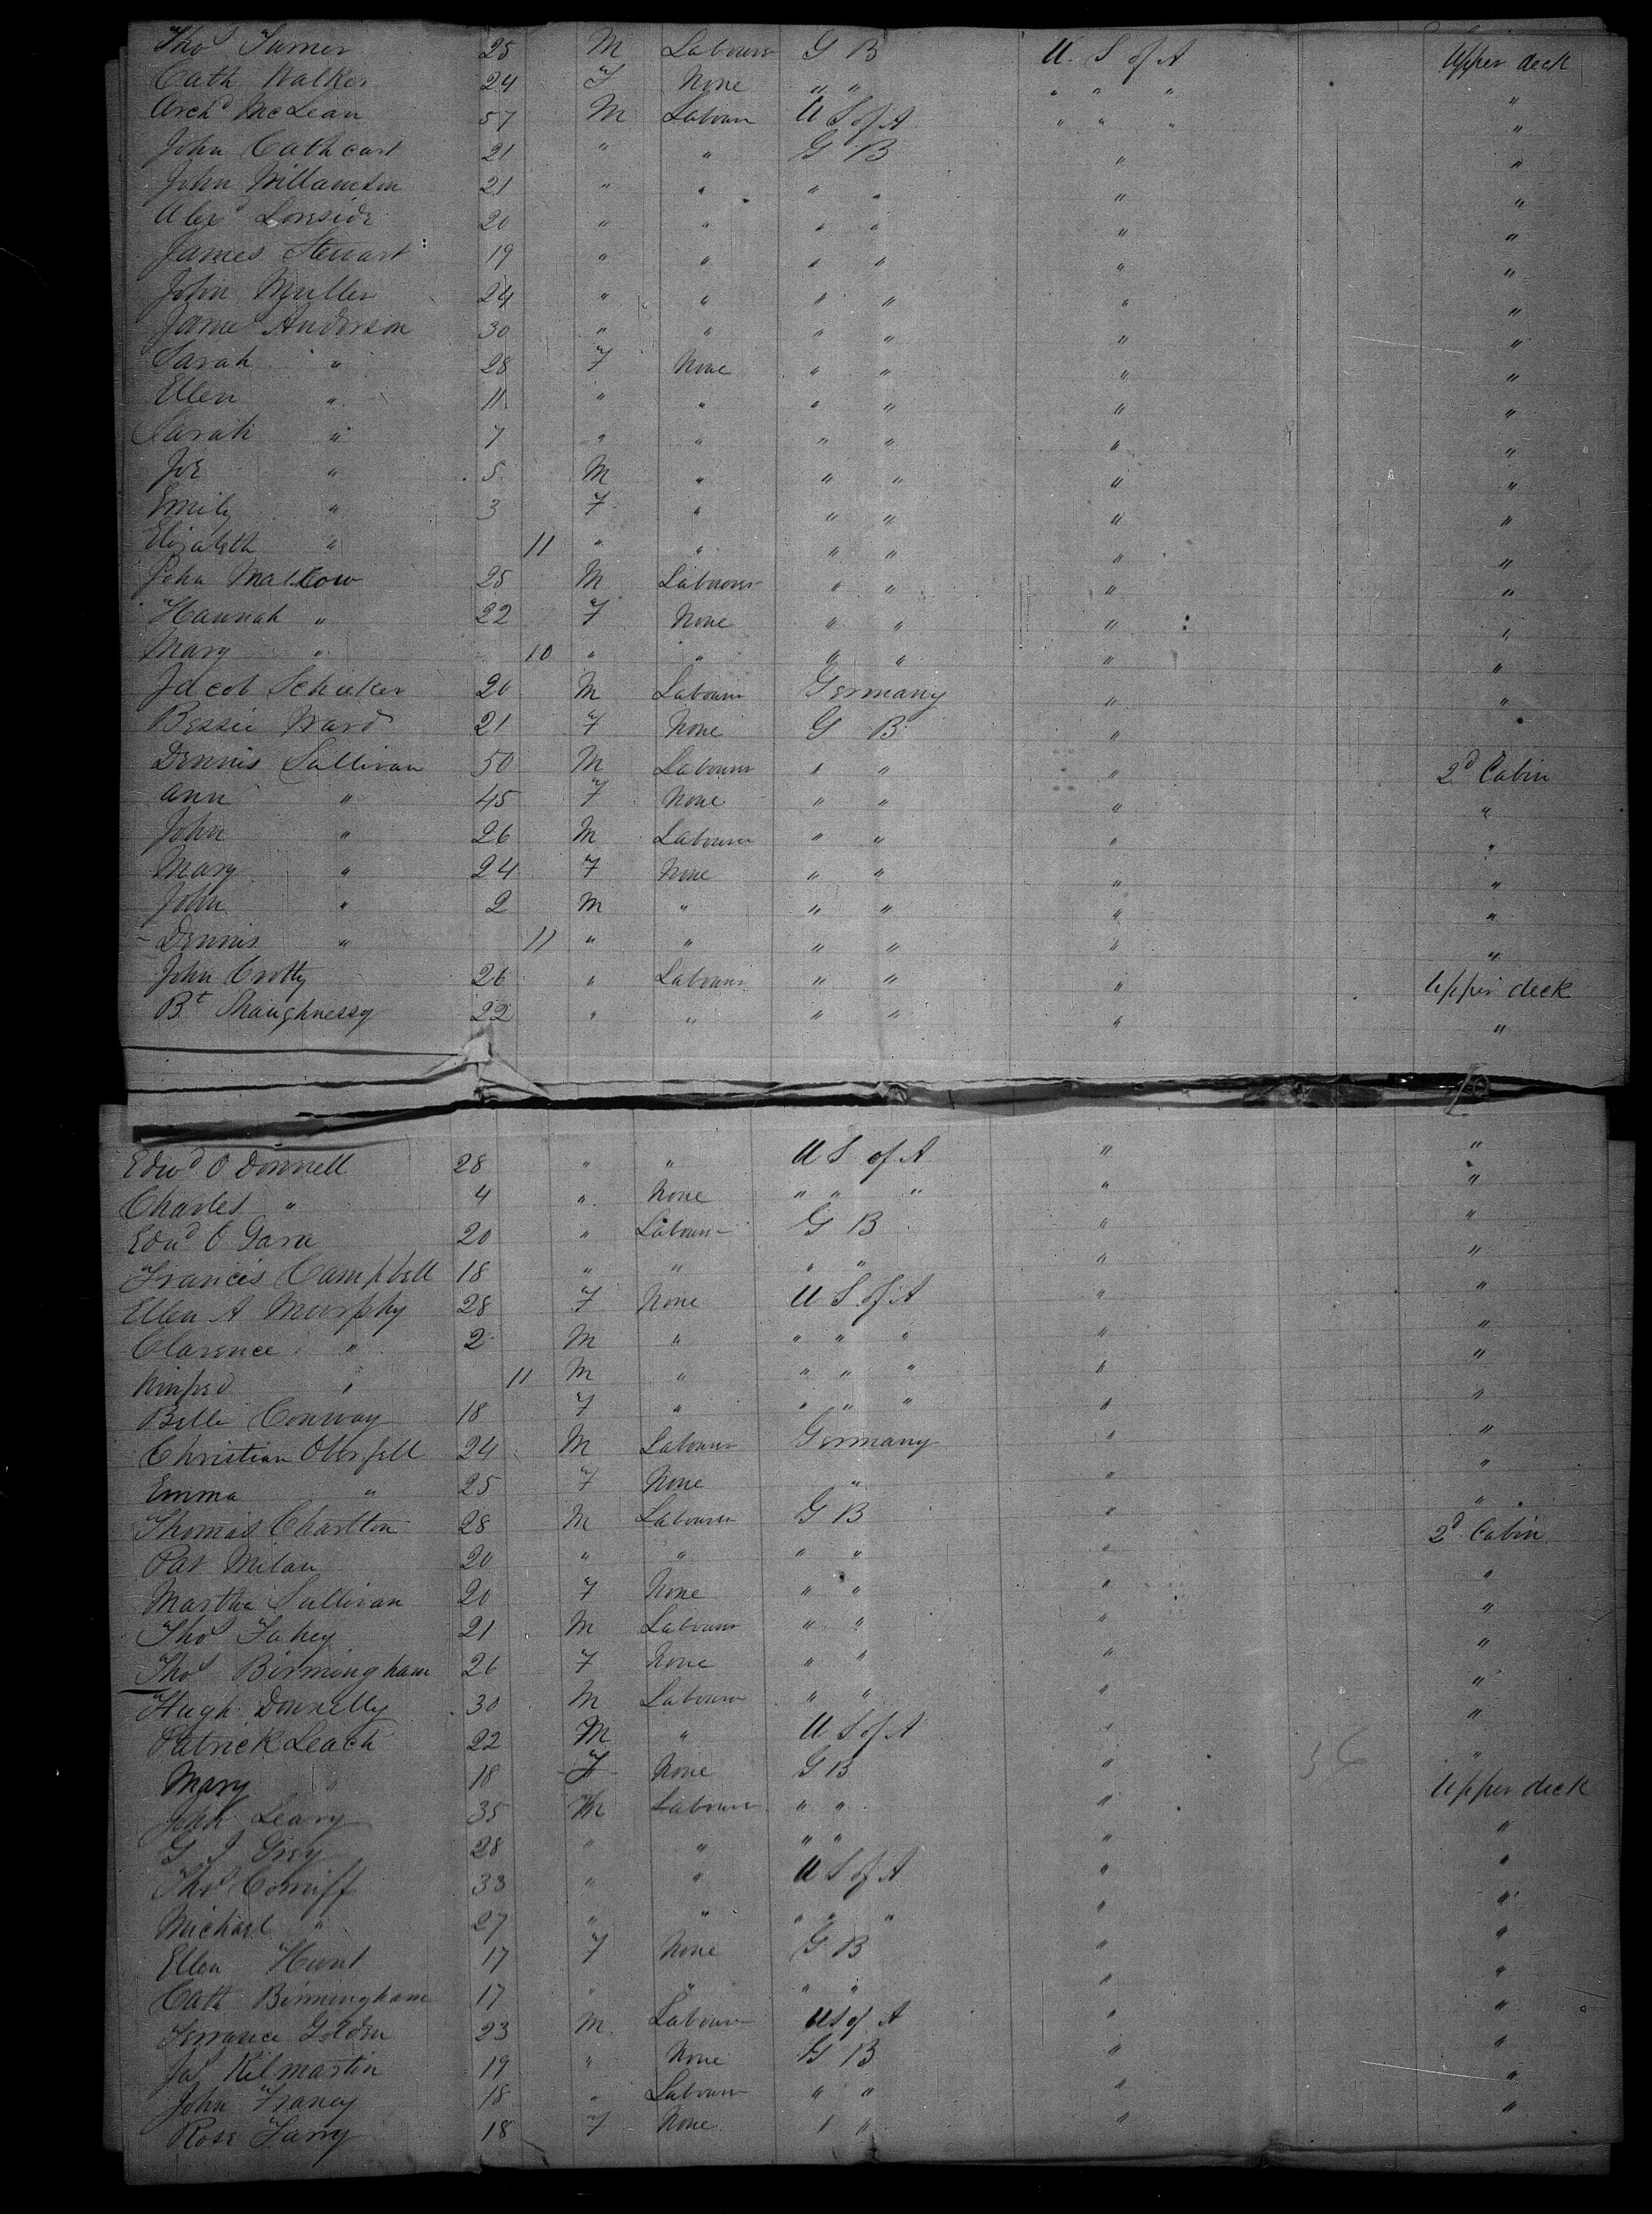 Thos Turner 25 M Labourer G B U. S of A Upper deck
Cath Walker 24 F None " " " " " "
Archd McLean 57 M Labourer U S of A " " " "
John Cathcart 21 " " G B " "
John Williamson 21 " " " " " "
Alexd Loneside 20 " " " " " "
James Stewart 19 " " " " " "
John Muller 24 " " " " " "
Jame Anderson 30 " " " " " "
Sarah " 28 F None " " " "
Ellen " 11 " " " " " "
Sarah " 7 " " " " " "
Joe " 5 M " " " " "
Emily " 3 F " " " " "
Elizabeth " 11 " " " " " "
John Mallow 25 M Labourer " " " "
Hannah " 22 F None " " " "
Mary " 10 " " " " " "
Jacob Schicker 20 M Labourer Germany " "
Bessie Ward 21 F None G B "
Dennis Sullivan 50 M Labourer " " " 2d Cabin
Ann " 45 F None " " " "
John " 26 M Labourer " " " "
Mary " 24 F None " " " "
John " 2 M " " " " "
Dennis " 11 " " " " " "
John Crotty 26 " Labourer " " " Upper deck
Bt Shaughnessy 22 " " " " " "
10
Edwd O Donnell 28 " " U S of A " "
Charles " 4 " None " " " " "
Edwd O Gara 20 " Labourer G B " "
Francis Campbell 18 " " " " " "
Ellen A Murphy 28 F None U S of A " "
Clarence " 2 M " " " " " "
Winfred " 11 M " " " " " "
Belle Conway 18 F " " " " " "
Christian Oberfell 24 M Labourer Germany " "
Emma " 25 F None " " "
Thomas Charlton 28 M Labourer G B " 2d Cabin
Pat Milan 20 " " " " " "
Martha Sullivan 20 F None " " " "
Thos Fahey 21 M Labourer " " " "
Thos Birmingham 26 F None " " " "
Hugh Donnelly 30 M Labourer " " " "
Patrick Leach 22 M " U S of A " "
Mary " 18 F None G B " Upper deck
John Leary 35 M Labourer " " " "
G J Grey 28 " " " " " "
Thos Conniff 33 " " U S of A " "
Michael " 27 " " " " " " "
Ellen Hunt 17 F None G B " "
Cath Birmingham 17 " " " " " "
Terrance Golden 23 M Labourer U S of A " "
Jas Kilmartin 19 " None G B " "
John Franey 18 " Labourer " " " "
Rose Farry 18 F None " " "